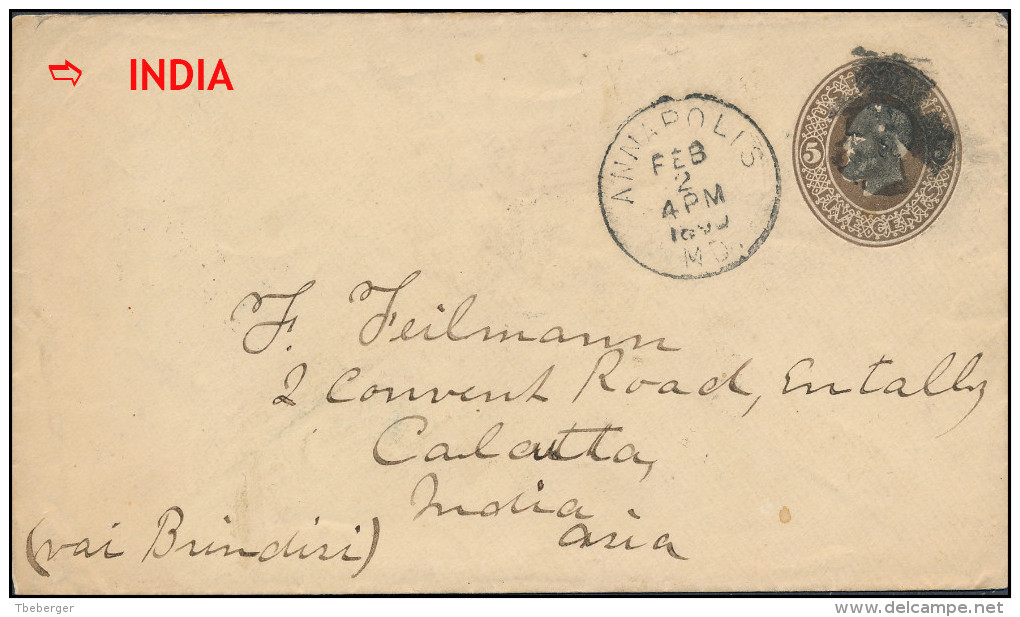 ⇨ INDIA
ANNAPOLIS
FEB
2
4 PM
MD.
5
FIVE CENTS
F. Feilmann
2 Convent Road, Entally
Calcutta,
India
Asia
(vai Brindisi)
Tbeberger
delcampe.net